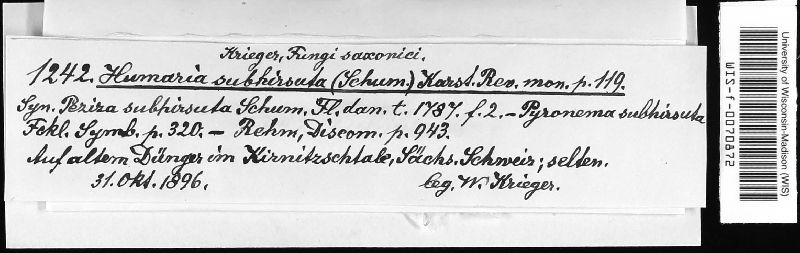 Krieger, Fungi saxonici.
1242. Humaria subhirsuta (Schum.) Karst. Rev. mon. p. 119.
Syn. Peziza subhirsuta Schum. Fl. dan. t. 1787. f. 2. – Pyronema subhirsuta
Fckl. Symb. p. 320. – Rehm, Discom. p. 943.
Auf altem Dünger im Kirnitzschtale, Sächs. Schweiz; selten.
31. Okt. 1896. leg. W. Krieger.
University of Wisconsin-Madison (WIS)
WIS-F-0070872